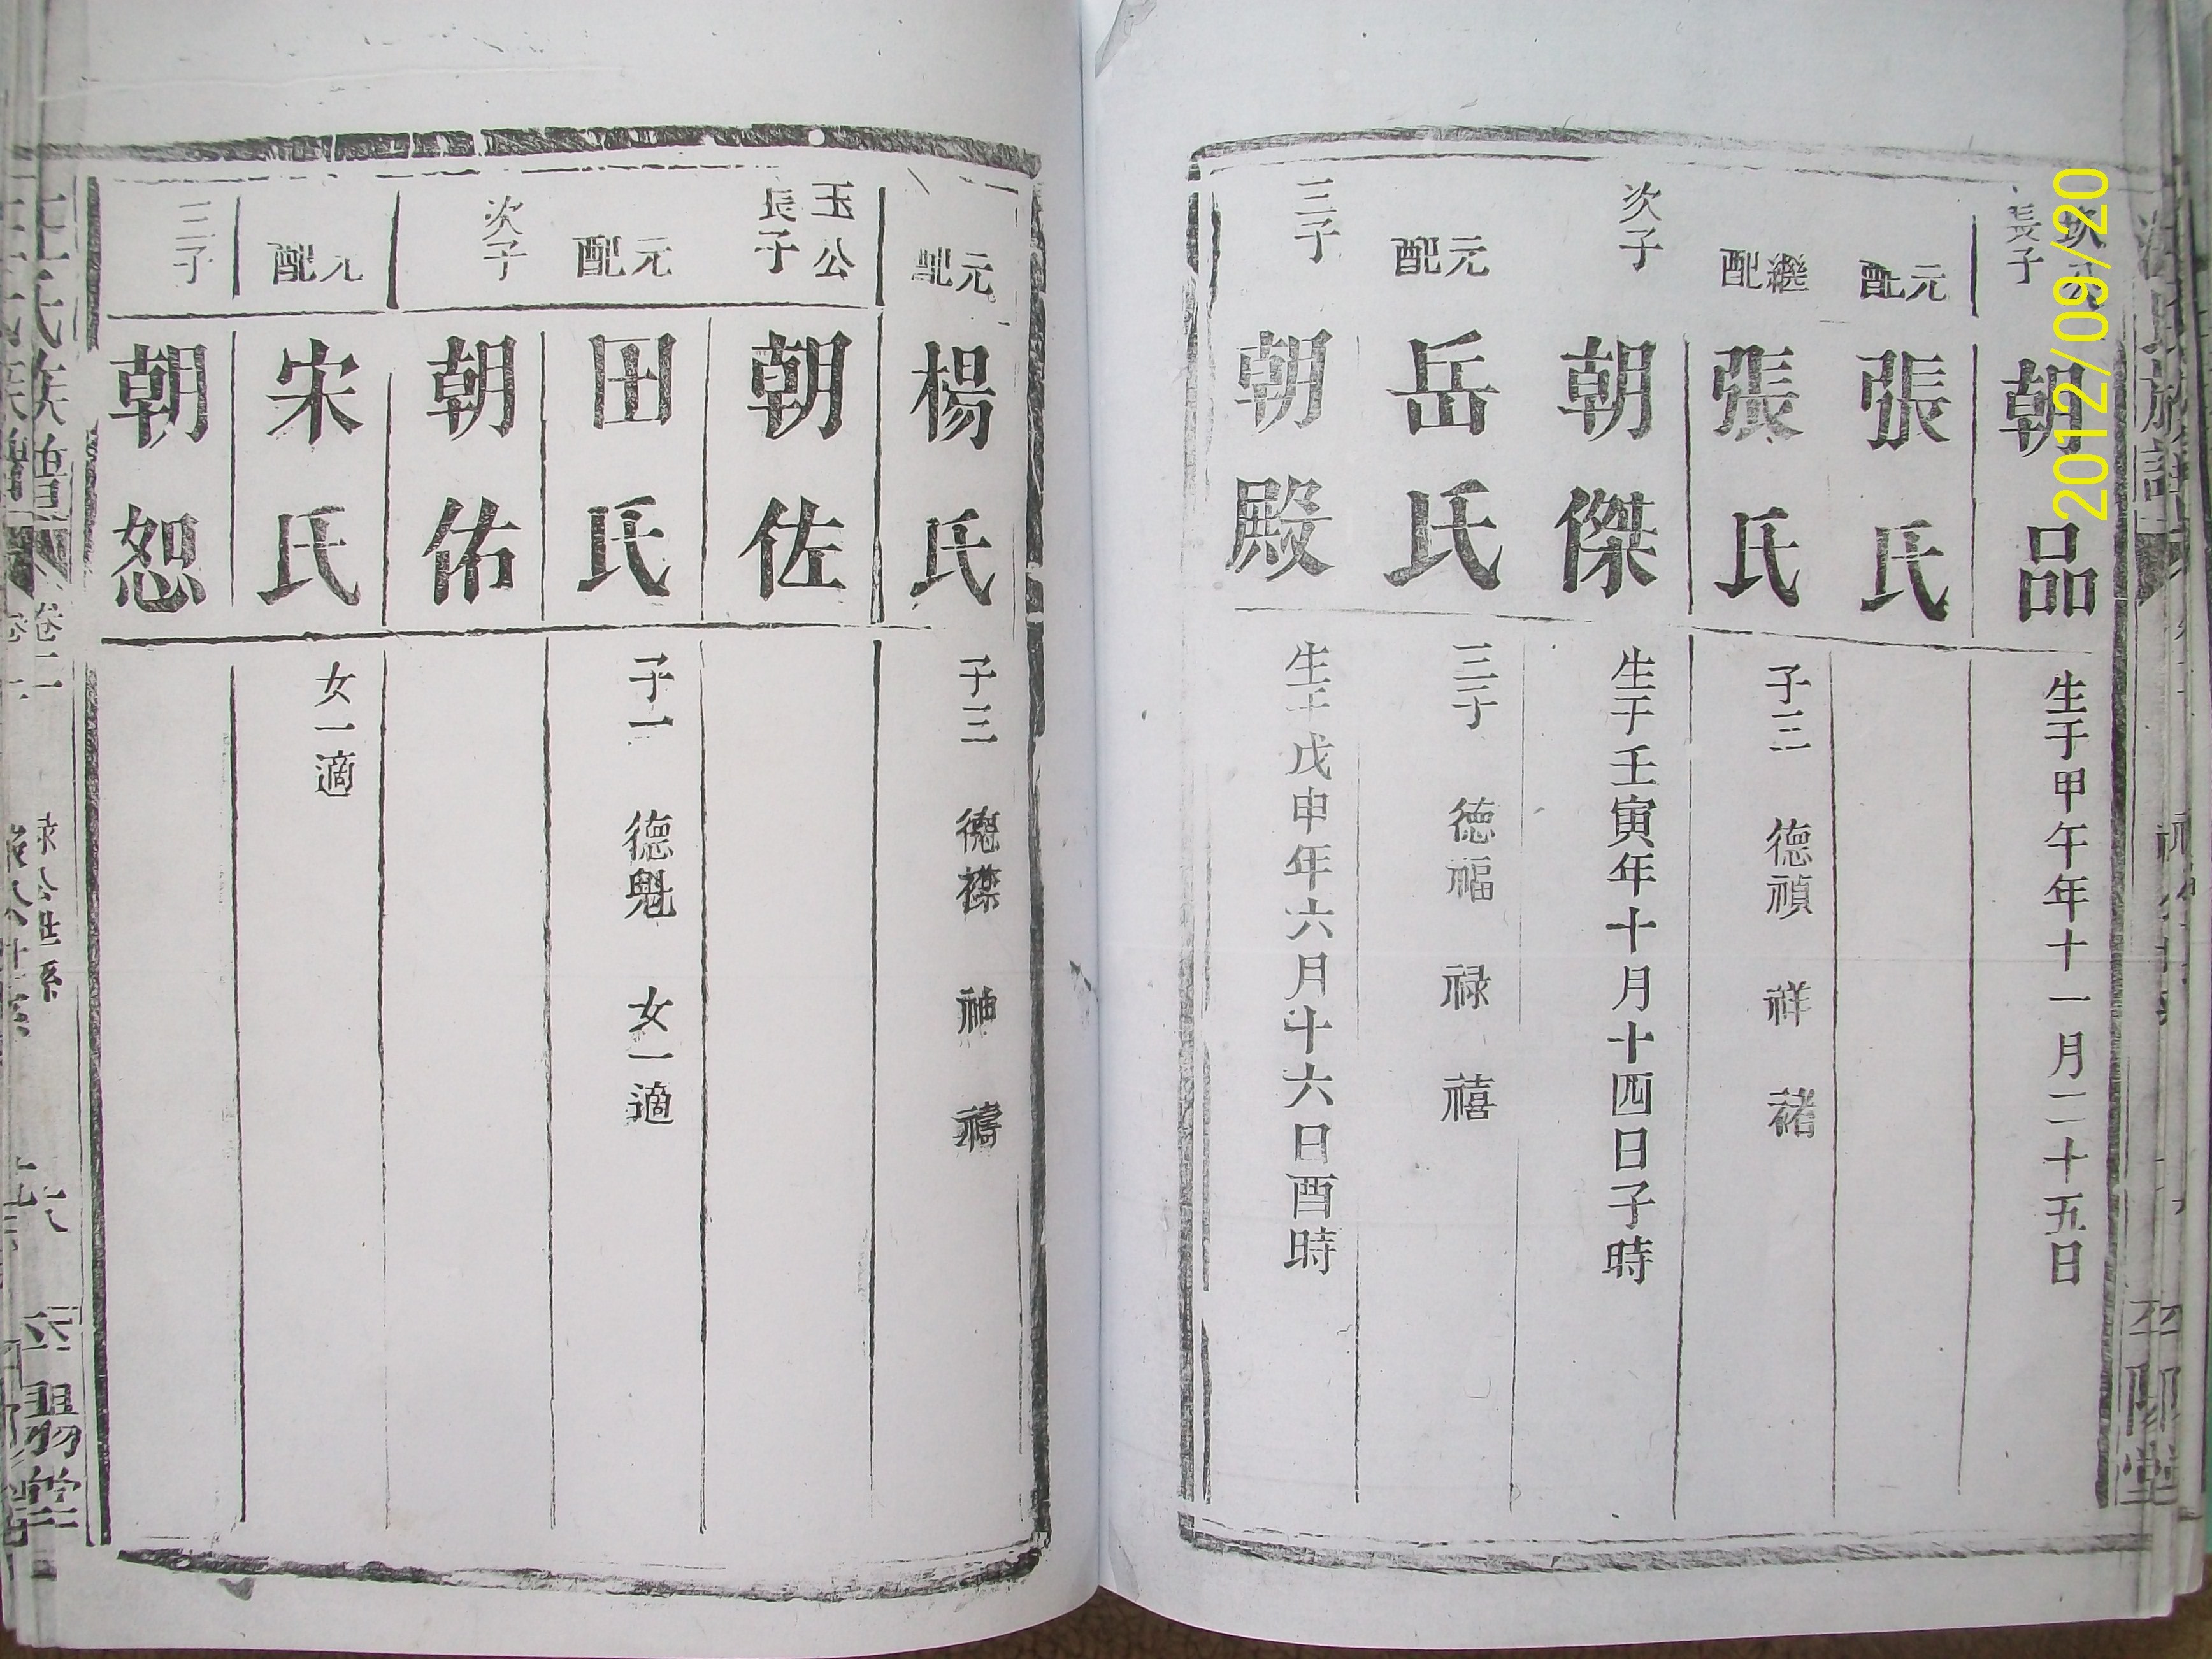 長子
朝品
生于甲午年十一月二十五日
元配
張氏
繼配
張氏
子三 德禎 祥 禇
次子
朝傑
生于壬寅年十月十四日子時
元配
岳氏
三子 德福 禄 禧
三子
朝殿
生于戊申年六月十六日酉時
元配
楊氏
子三 德襟 神 禱
玉公
長子
朝佐
元配
田氏
子一 德魁 女一適
次子
朝佑
元配
宋氏
女一適
三子
朝恕
氏族譜
卷二
公世系
平陽堂
2012/09/20